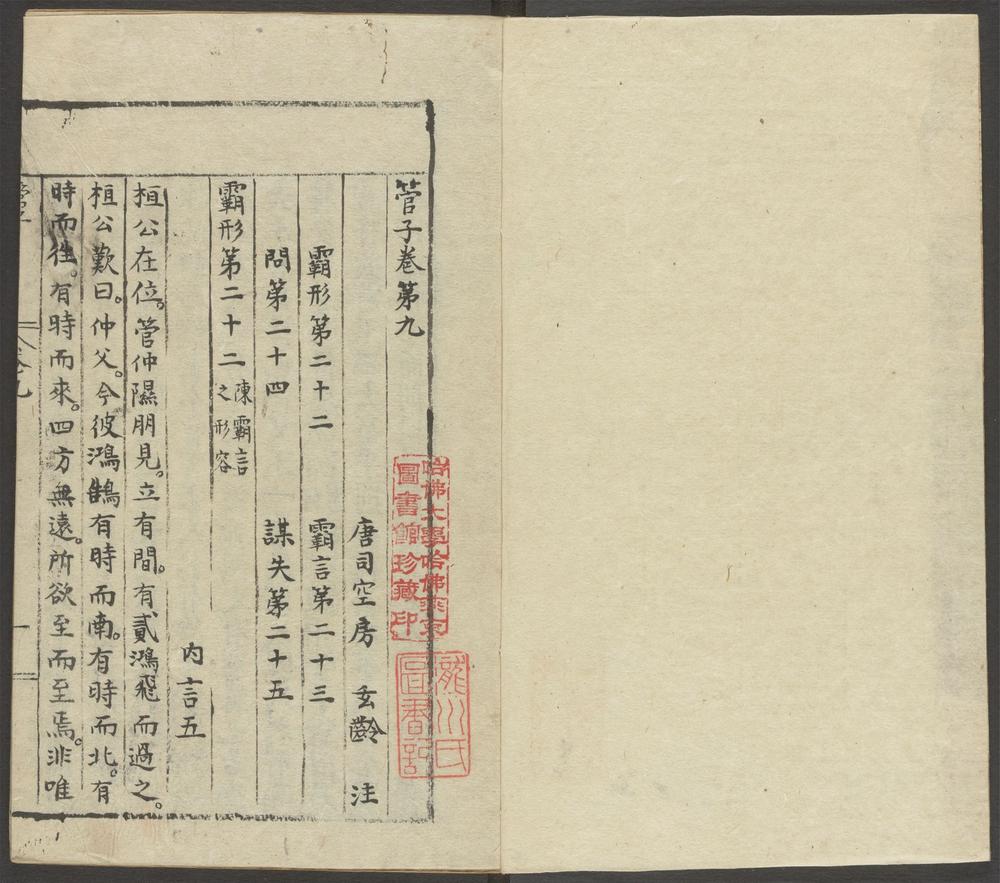 管子卷第九
唐司空房 玄齡 注
霸形第二十二 霸言第二十三
問第二十四 謀失第二十五
霸形第二十二 陳霸言之形容
內言五
桓公在位。管仲隰朋見。立有間。有貳鴻飛而過之。
桓公歎曰。仲父。今彼鴻鵠有時而南。有時而北。有
時而往。有時而來。四方無遠。所欲至而至焉。非唯
哈佛大學哈佛燕京
圖書館珍藏印